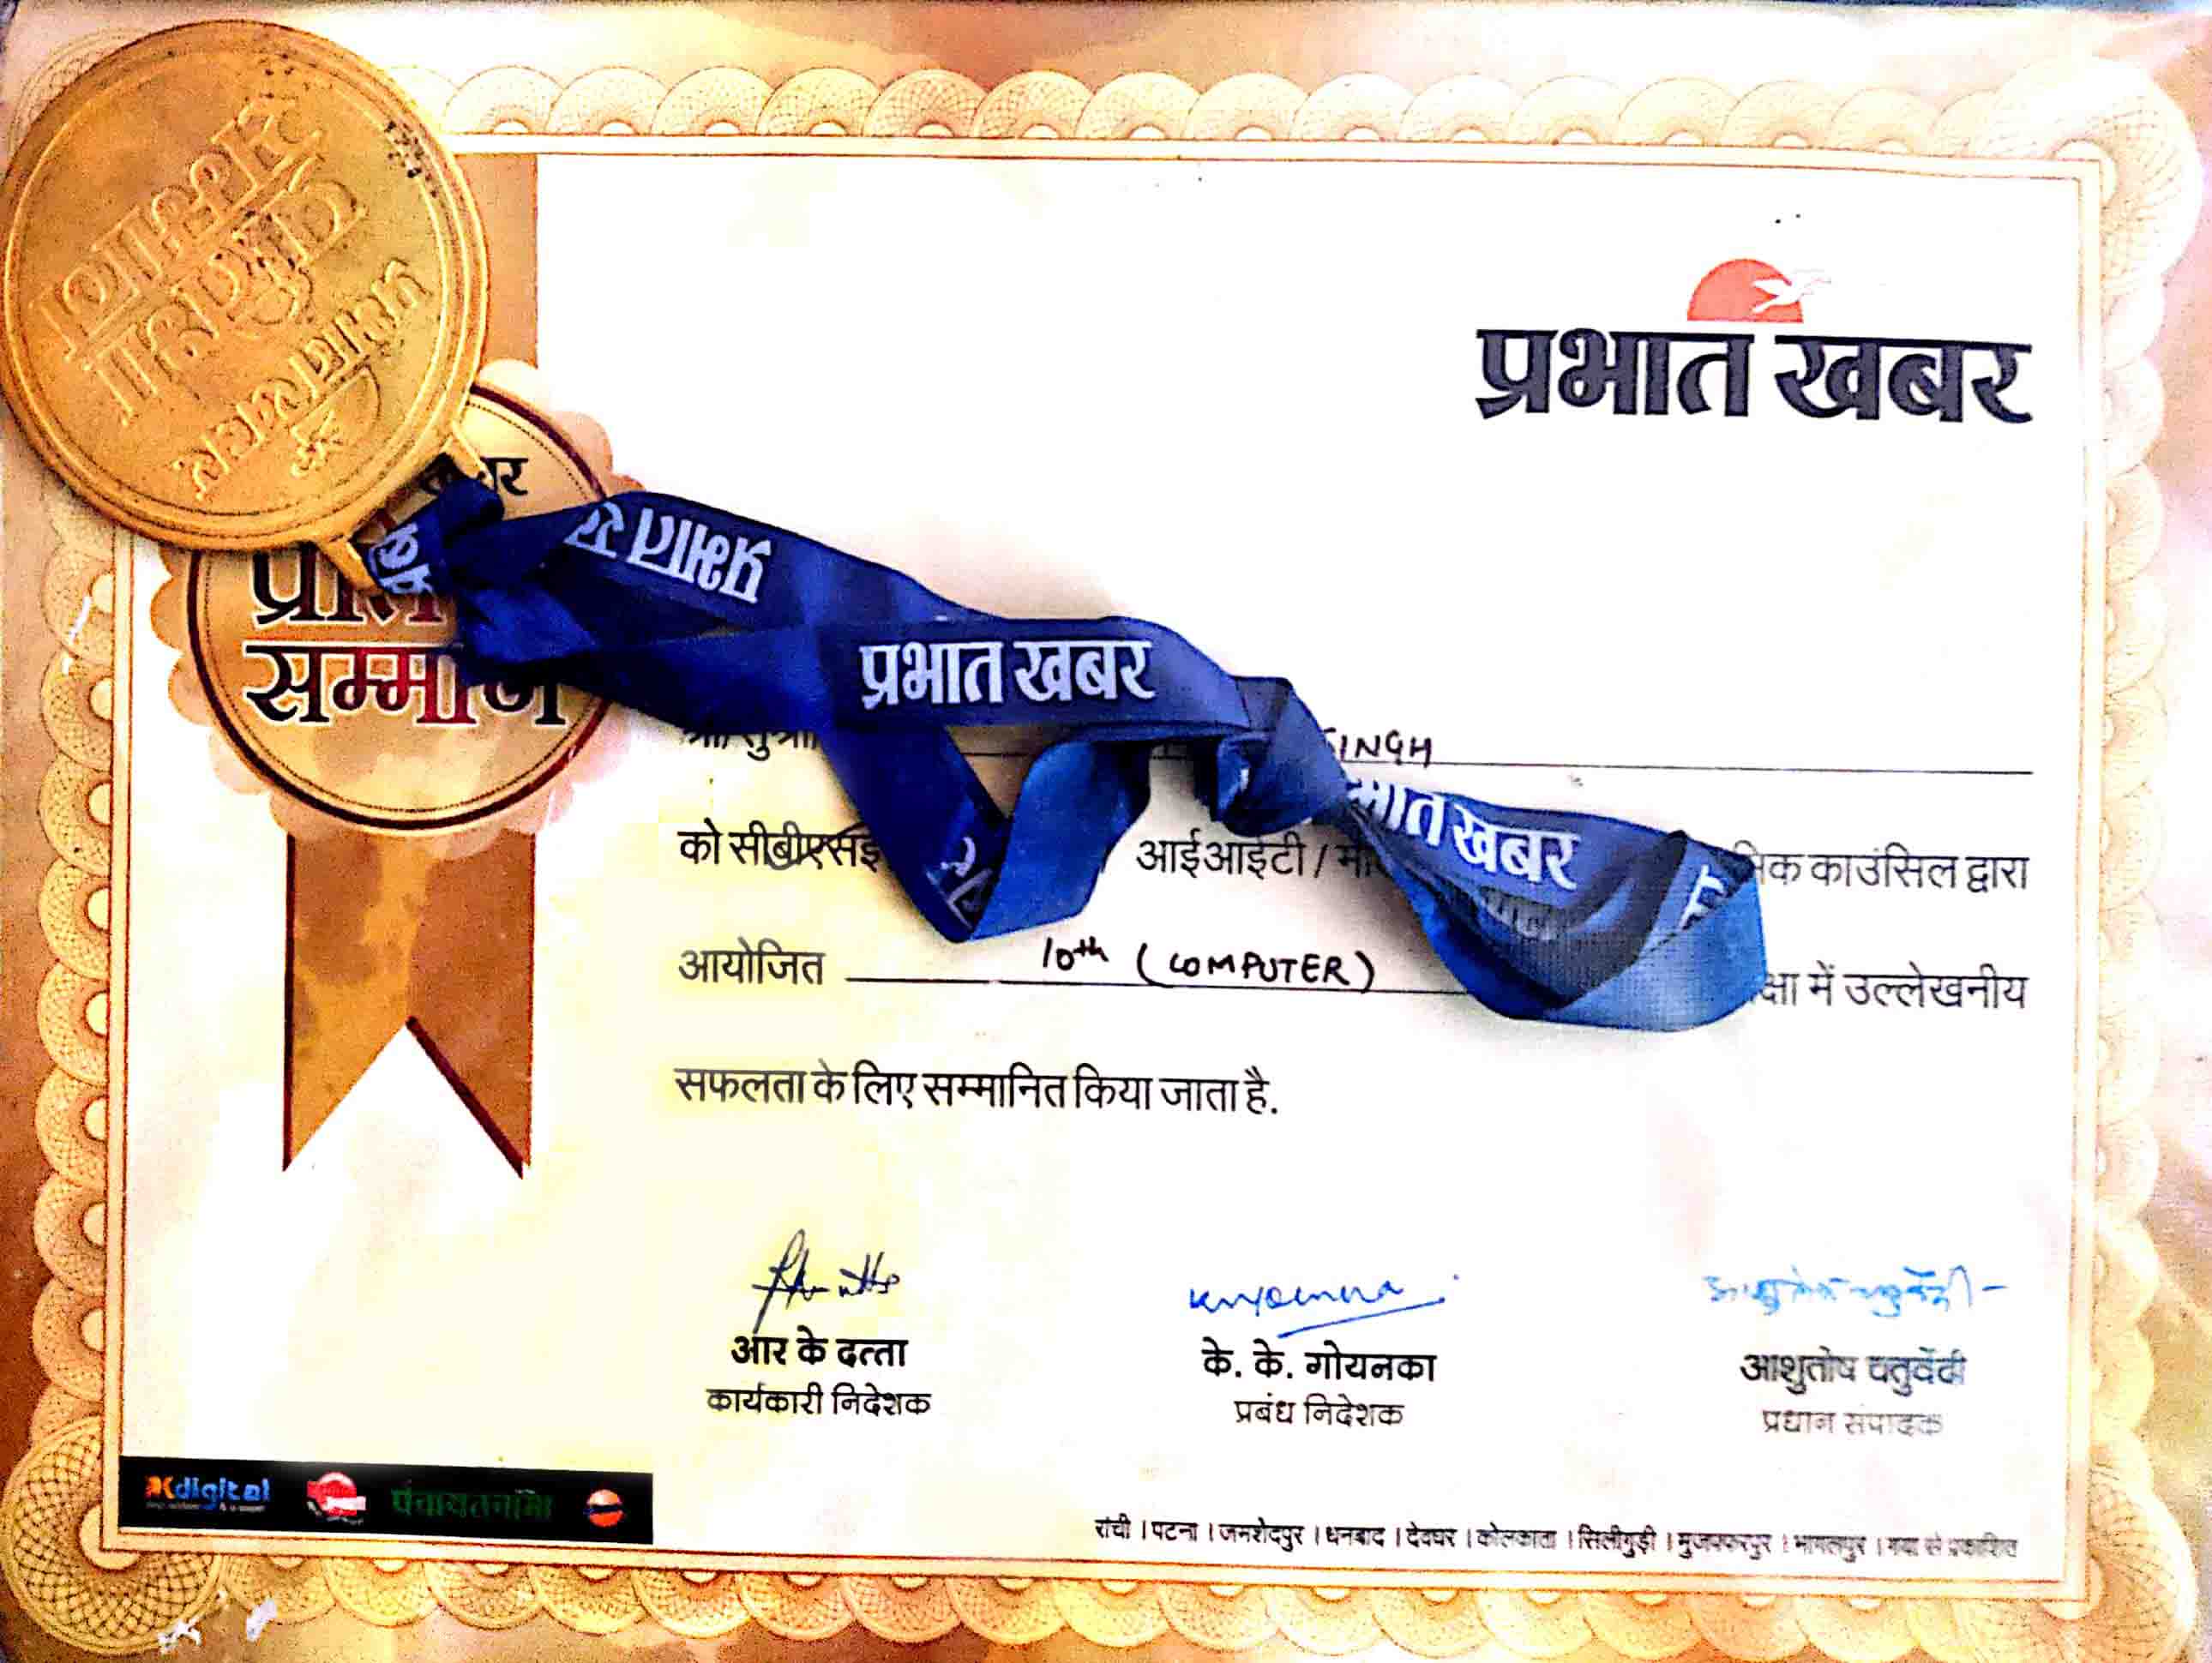 प्रभात खबर
सम्मान
प्रभात
प्रभात खबर
SINGH
खबर
को सीबीएसई
आईआईटी /
काउंसिल द्वारा
आयोजित 10th (COMPUTER)
में उल्लेखनीय
सफलता के लिए सम्मानित किया जाता है.
आर के दत्ता
कार्यकारी निदेशक
के. के. गोयनका
प्रबंध निदेशक
आशुतोष चतुर्वेदी
प्रधान संपादक
digital
पंचायतनामा
रांची । पटना । जमशेदपुर । धनबाद । देवघर । कोलकाता । सिलीगुड़ी । मुजफ्फरपुर । भागलपुर । गया से प्रकाशित